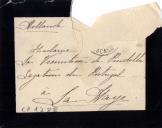 Hollande
Madame
La Vicomtesse de Pindella
Légation de Portugal
à
La Haye